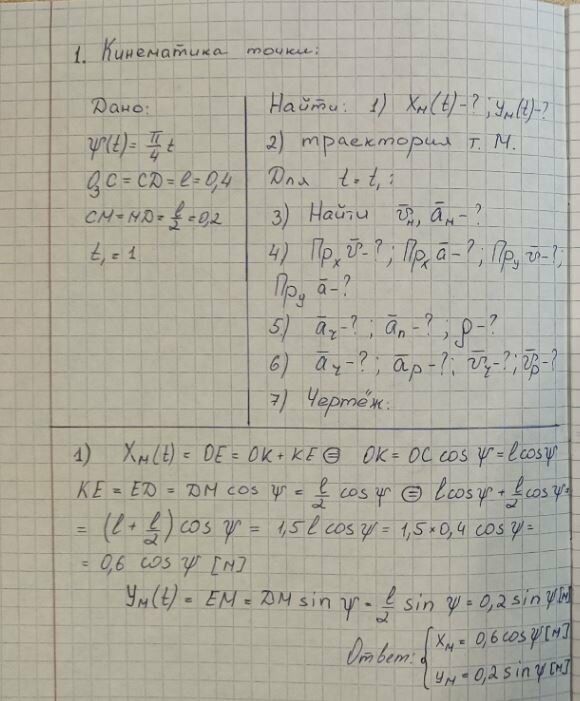 1. Кинематика точки:
Дано:
ψ(t) = π/4 t
O₃C = CD = l = 0,4
CM = MD = l/2 = 0,2
t₁ = 1
Найти: 1) Xм(t)-?; Yм(t)-?
2) траектория т. М.
Для t = t₁:
3) Найти v̄м, āм-?
4) Прₓ v̄-?; Прₓ ā-?; Прᵧ v̄-?;
Прᵧ ā-?
5) ā𝜏-?; āₙ-?; ρ-?
6) āч-?; āр-?; v̄ч-?; v̄р-?
7) Чертёж:
1) Xм(t) = OE = OK + KE ⊜ OK = OC cos ψ = l cos ψ
KE = ED = DM cos ψ = l/2 cos ψ ⊜ l cos ψ + l/2 cos ψ =
= (l + l/2) cos ψ = 1,5 l cos ψ = 1,5 × 0,4 cos ψ =
= 0,6 cos ψ [м]
Yм(t) = EM = DM sin ψ = l/2 sin ψ = 0,2 sin ψ [м]
Ответ: { Xм = 0,6 cos ψ [м]
Yм = 0,2 sin ψ [м]